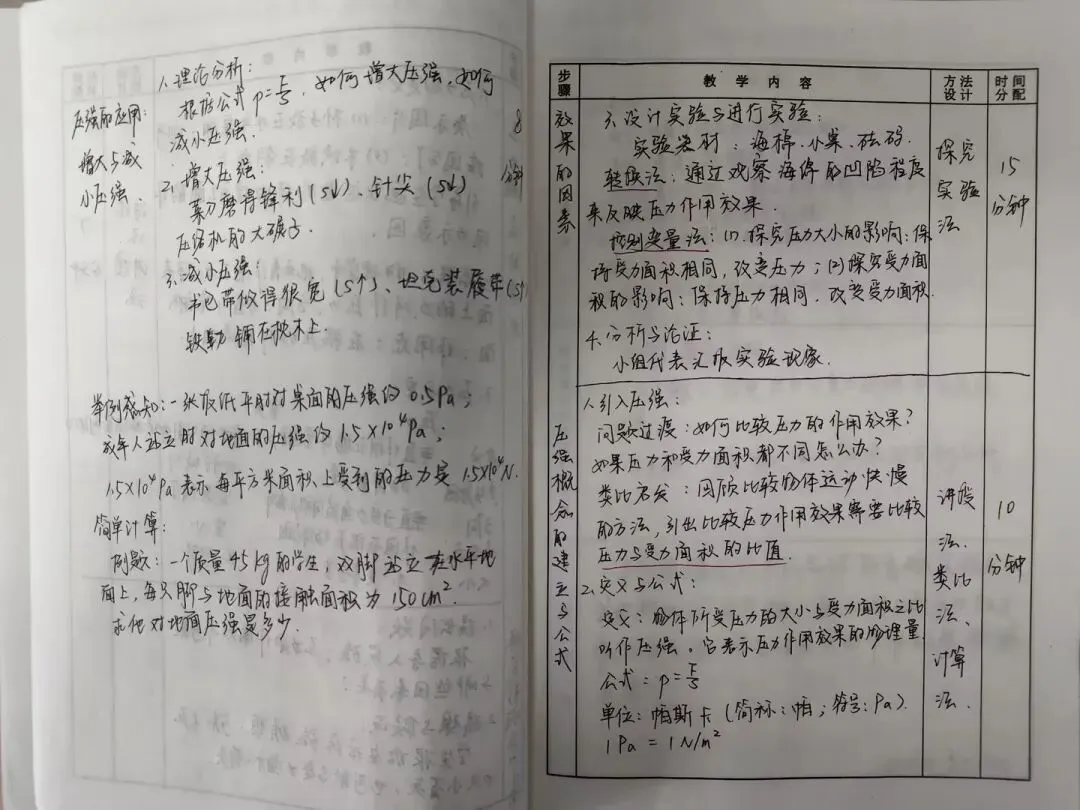 压强的应用：
增大与减
小压强.
1. 理论分析：
根据公式 p=F/S，如何增大压强，如何
减小压强.
2. 增大压强：
菜刀磨得锋利(S↓)、针尖(S↓)
压路机的大碾子.
3. 减小压强：
书包带做得很宽(S↑)、坦克装履带(S↑)
铁轨铺在枕木上.
8
分钟
举例感知：一张报纸平时对桌面的压强约0.5Pa；
成年人站立时对地面的压强约1.5×10⁴Pa；
1.5×10⁴Pa表示每平方米面积上受到的压力是1.5×10⁴N.
简单计算：
例题：一个质量45kg的学生，双脚站立在水平地
面上，每只脚与地面的接触面积为150cm².
求他对地面压强是多少.
步骤 教学内容 方法设计 时间分配
效果的因素
3. 设计实验与进行实验：
实验器材：海棉、小桌、砝码.
转换法：通过观察海绵的凹陷程度
来反映压力作用效果.
控制变量法：(1).探究压力大小的影响：保
持受力面积相同，改变压力；(2)探究受力面
积的影响：保持压力相同，改变受力面积.
4. 分析与论证：
小组代表汇报实验现象.
探究
实验
法
15
分钟
压强概念的建立与公式
1. 引入压强：
问题过渡：如何比较压力的作用效果？
如果压力和受力面积都不同怎么办？
类比启发：回顾比较物体运动快慢
的方法，引出比较压力作用效果需要比较
压力与受力面积的比值.
2. 定义与公式：
定义：物体所受压力的大小与受力面积之比
叫作压强。它表示压力作用效果的物理量.
公式：p=F/S
单位：帕斯卡(简称：帕；符号：Pa).
1Pa=1N/m²
讲授
法、
类比
法、
计算
法.
10
分钟